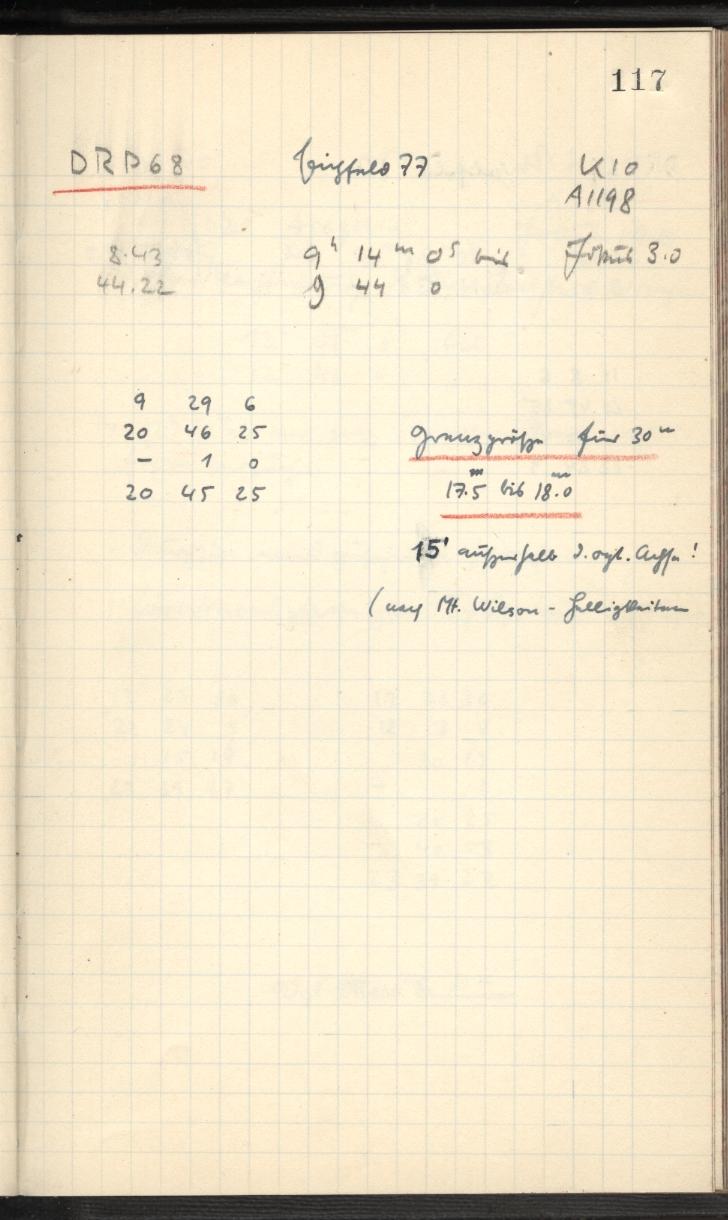 117
DRP68 Eichfeld 77 K10
A1198
8.43 9h 14m 0s bis Fokus 3.0
44.22 9 44 0
9 29 6
20 46 25 Grenzgröße für 30m
– 1 0
20 45 25 17.5m bis 18.0m
15' außerhalb d. opt. Achse!
(nach Mt. Wilson - Helligkeiten